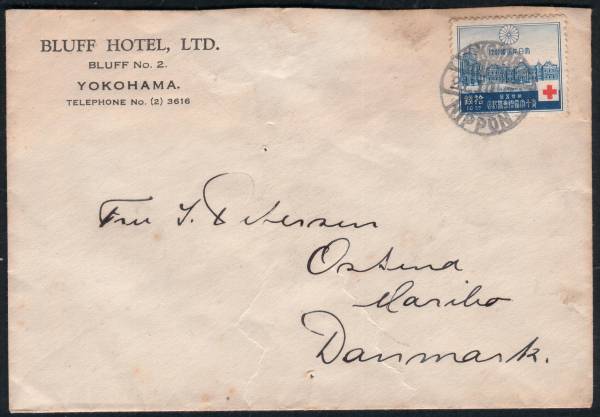 BLUFF HOTEL, LTD.
BLUFF No. 2.
YOKOHAMA.
TELEPHONE No. (2) 3616
拾銭
NIPPON
Fru I. Petersen
Ostend
Maribo
Danmark.